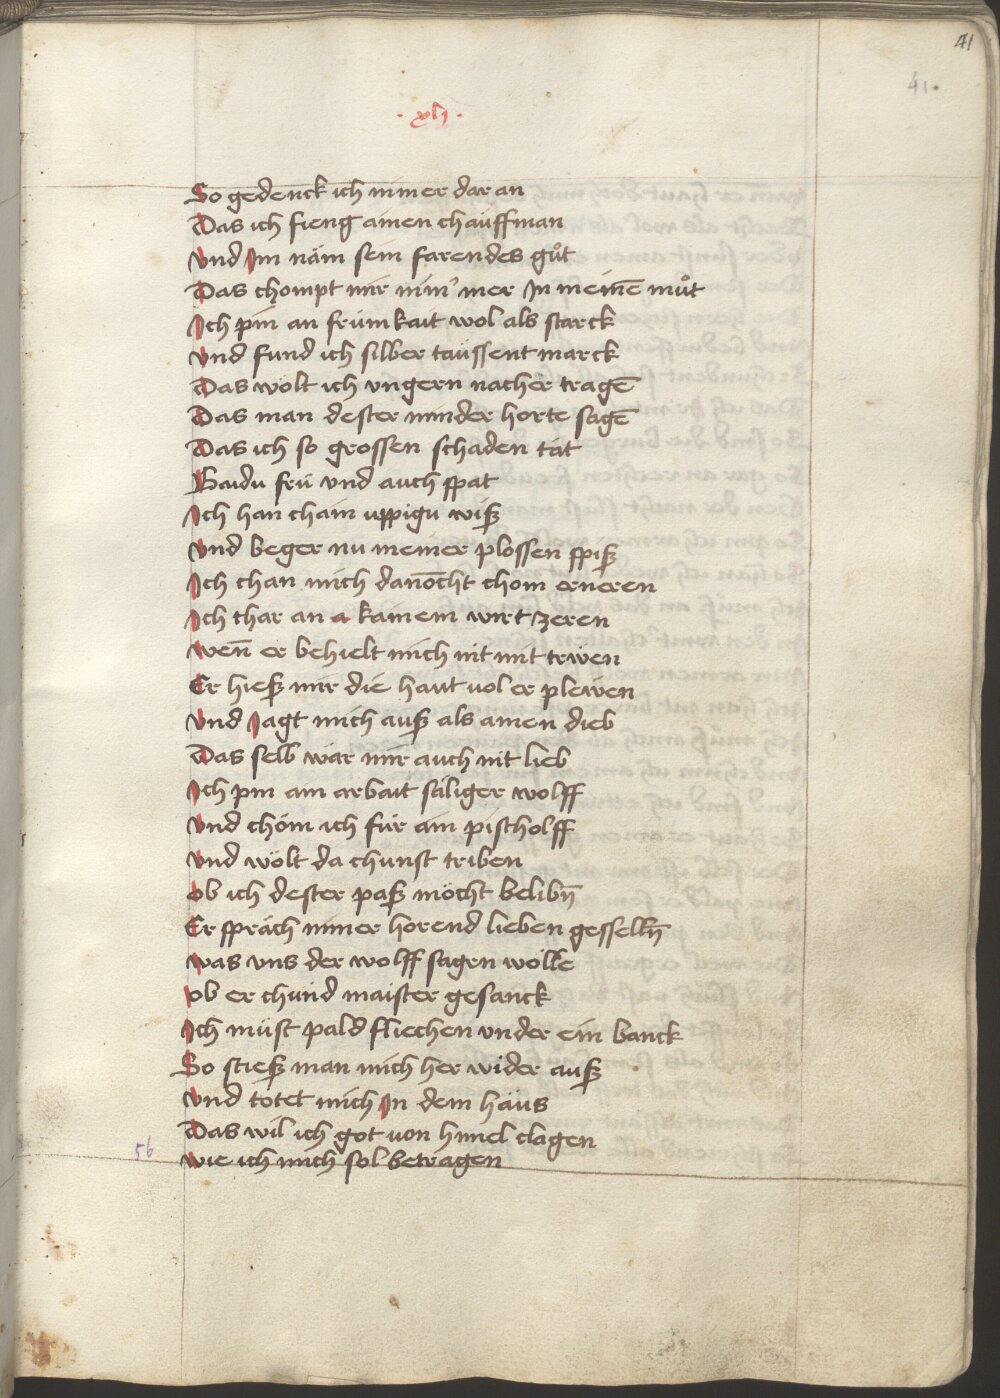 41
41.
· xlj ·
So gedenck ich immer dar an
Das ich fieng ainen chauffman
Und Im näm sein farendes gůt
Das chompt mir nim͛ mer In meinē můt
Ich pin an frümkait wol als starck
Und fund ich silber taussent marck
Das wolt ich ungern nacher tragē
Das man dester minder horte sagē
Das ich so grossen schaden tät
Baidu frü vnd auch spat
Ich han chain uppigu wiß
Und beger nu meiner plossen spiß
Ich chan mich danocht chom erneren
Ich thar an kainem wirt zeren
Wen̄ er behielt mich nit mit trẅen
Er hieß mir die haut vol er plewen
Und Jagt mich auß als ainen dieb
Das selb wär mir auch nit lieb
Ich pin ain arbait säliger wolff
Und chöm ich für ain pischolff
Und wölt da chunst triben
Ob ich dester paß möcht belibn̄
Er spräch nimer horend lieben gesselln̄
Was uns der wolff sagen wölle
Ob er chund maister gesanck
Ich müst pald fliechen under ein banck
So stieß man mich her wider auß
Und totet mich In dem häus
Das wil ich got von himel clagen
56
Wie ich mich sol betragen